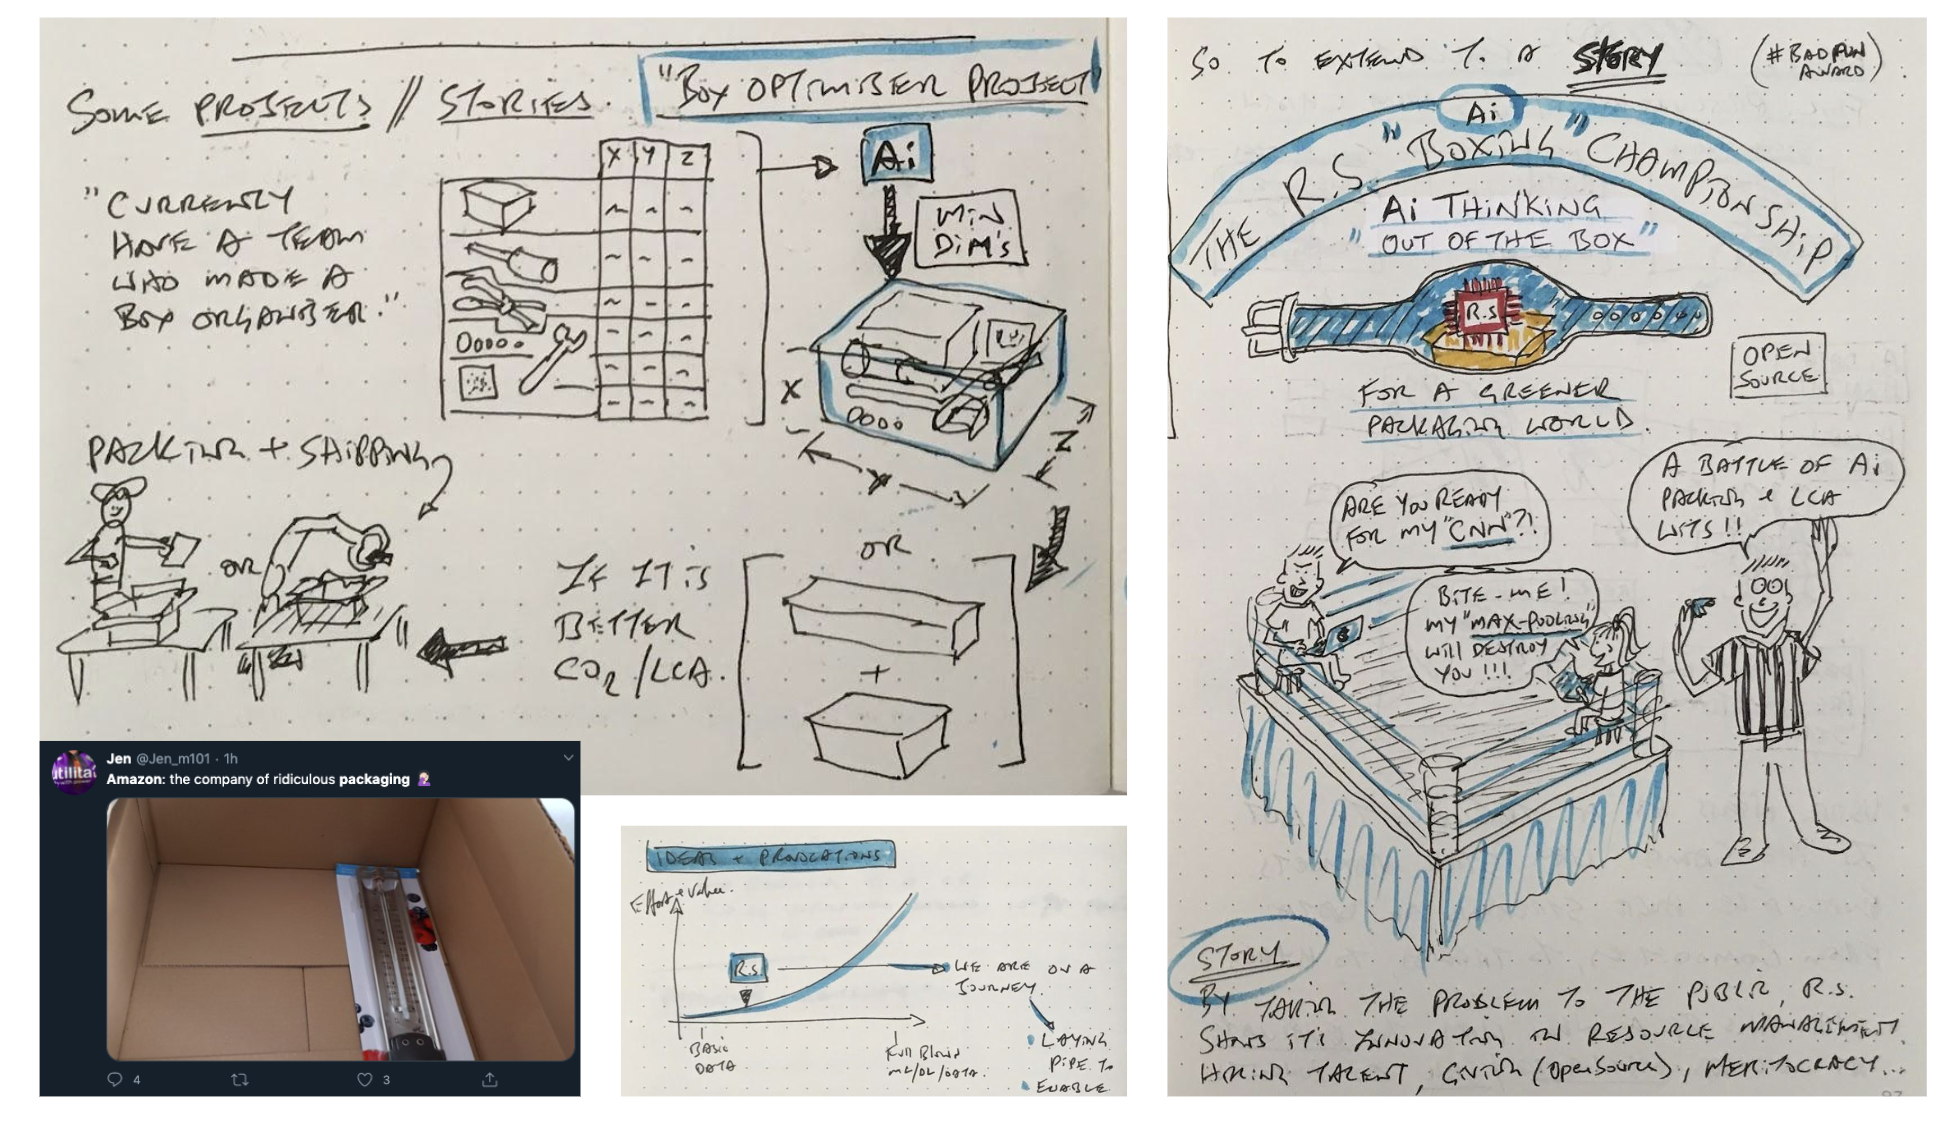 SOME PROJECTS // STORIES.
"BOX OPTIMISER PROJECT"
"CURRENTLY
HAVE A TEAM
WHO MADE A
BOX ORGANISER."
X Y Z
Ai
MIN
DIM'S
X
Y
Z
PACKING + SHIPPING
OR
IF IT IS
BETTER
CO2/LCA.
OR
+
Jen @Jen_m101 · 1h
Amazon: the company of ridiculous packaging
utilita
4
3
IDEAS + PROVOCATIONS
Effort + Value.
R.S.
WE ARE ON A
JOURNEY
BASIC
DATA
Full Blown
ML/DL/DATA.
LAYING
PIPE TO
ENABLE
SO TO EXTEND TO A STORY
(#BAD PUN
AWARD)
Ai
THE R.S. "BOXING" CHAMPIONSHIP
Ai THINKING
"OUT OF THE BOX"
R.S
OPEN
SOURCE
FOR A GREENER
PACKAGING WORLD.
ARE YOU READY
FOR MY "CNN"?!
A BATTLE OF Ai
PACKING & LCA
WITS!!
BITE-ME!
MY "MAX-POOLING"
WILL DESTROY
YOU!!!
STORY
BY TAKING THE PROBLEM TO THE PUBLIC, R.S.
SHOWS IT'S INNOVATING IN RESOURCE MANAGEMENT
HIRING TALENT, GIVING (OPEN SOURCE), MERITOCRACY...